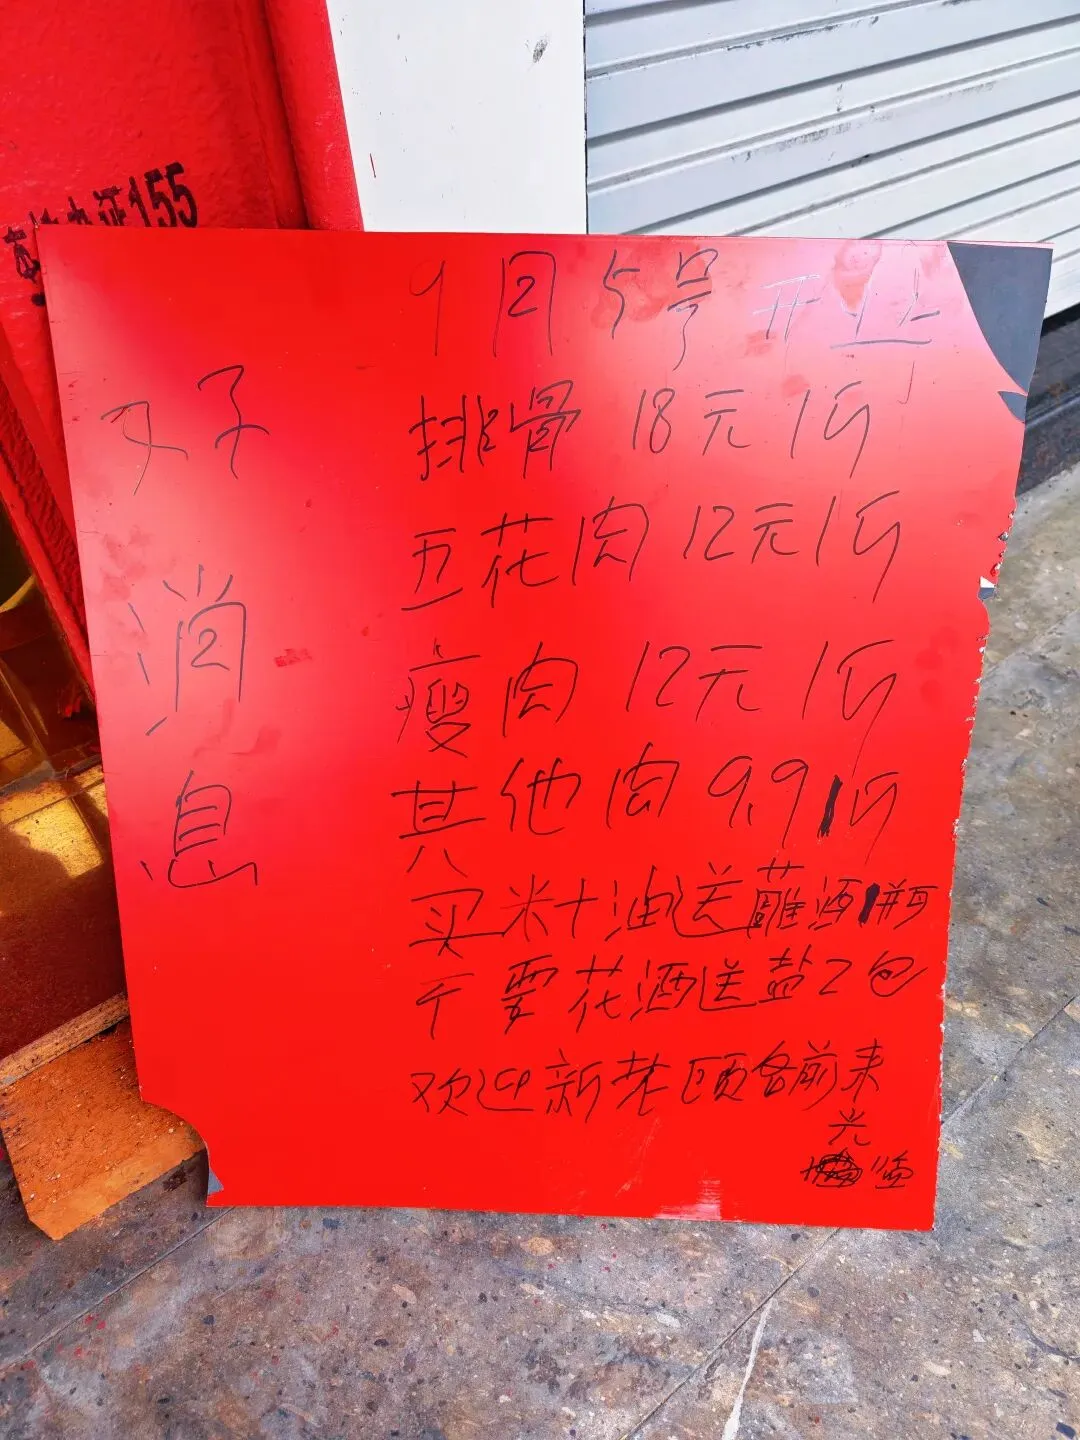 155
好消息
9月5号开业
排骨18元1斤
五花肉12元1斤
瘦肉12元1斤
其他肉9.91斤
买米十油送蘸酒1瓶
干要花酒送盐2包
欢迎新老顾客前来
光
临